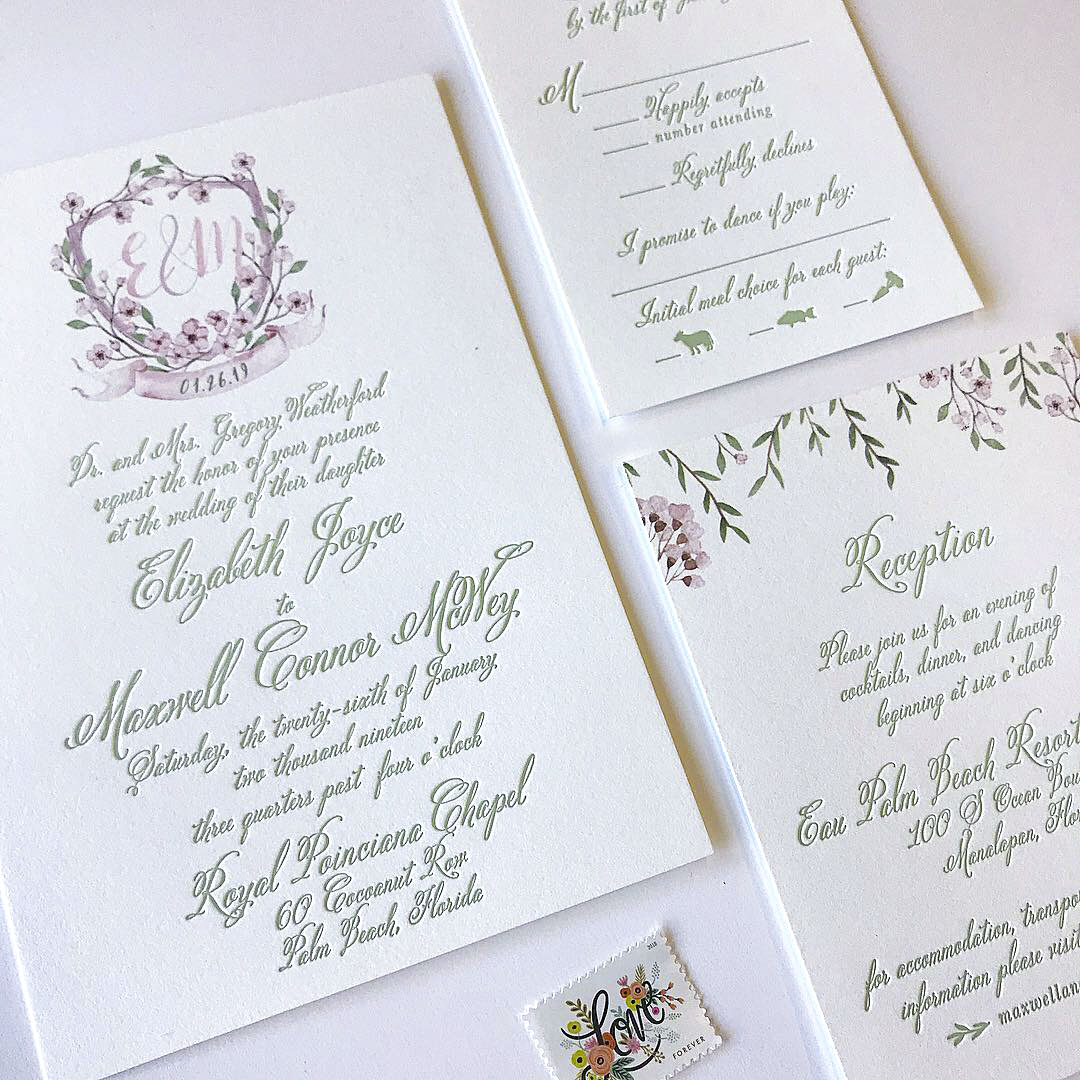 E&M
01.26.19
Dr. and Mrs. Gregory Weatherford
request the honor of your presence
at the wedding of their daughter
Elizabeth Joyce
to
Maxwell Connor McWey
Saturday, the twenty-sixth of January
two thousand nineteen
three quarters past four o'clock
Royal Poinciana Chapel
60 Cocoanut Row
Palm Beach, Florida
by the first of
M
Happily accepts
number attending
Regretfully declines
I promise to dance if you play:
Initial meal choice for each guest:
Reception
Please join us for an evening of
cocktails, dinner, and dancing
beginning at six o'clock
Eau Palm Beach Resort
100 S Ocean Bou
Manalapan, Flor
for accommodation, transpo
information please visit
maxwellan
2018
love
FOREVER